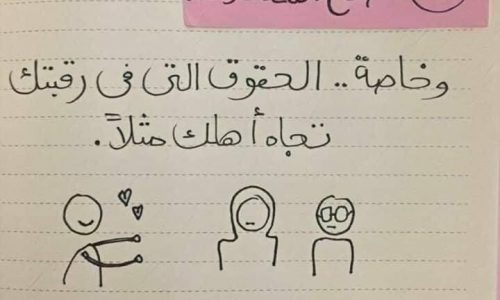 وخاصة.. الحقوق التى فى رقبتك
تجاه أهلك مثلاً.